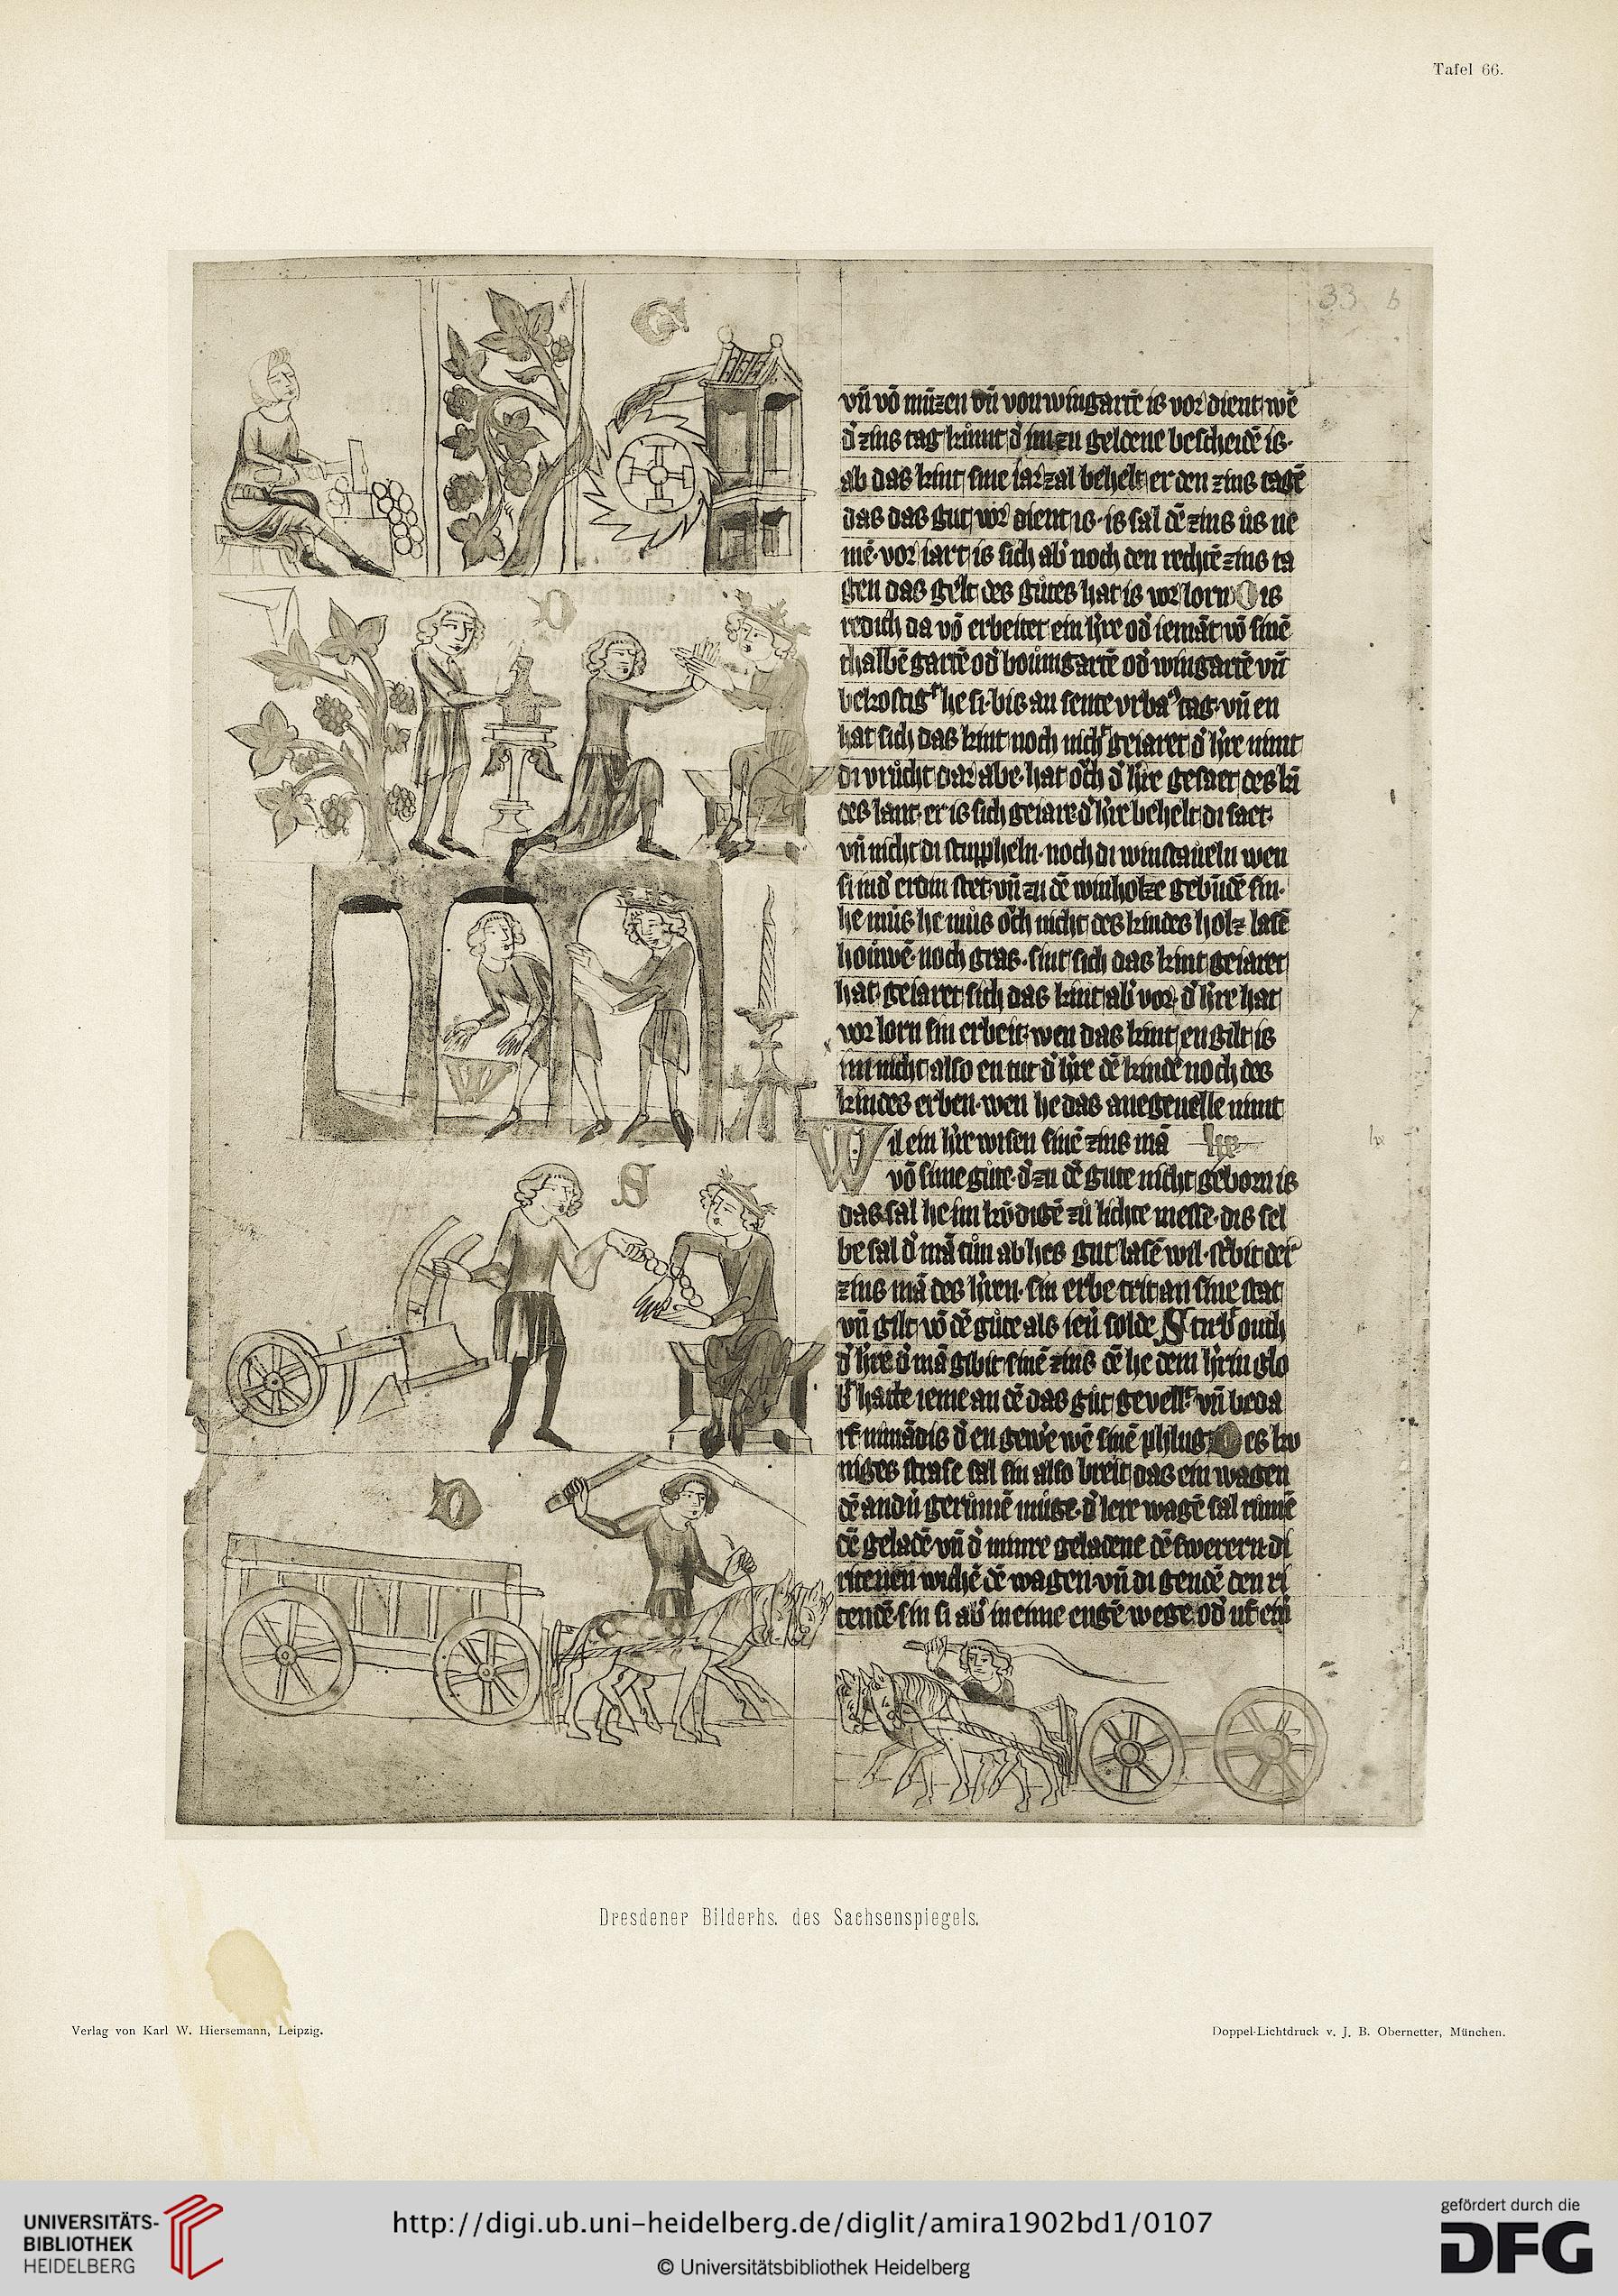 Tafel 66.
33 b
G
vn̄ vō mūzen vn̄ von wingartē is vor dient wē
d' zins tag kumt d' im zu geldene bescheidē is·
ab das kint sine iar zal behelt er den zins tagē
das das gut vor dient is· is sal dē zins ůs ne
mē· vor iart is sich ab' noch den rechtē zins ta
gen das gelt des gůtes hat is vor lorn D is
redich da vō erbeitet ein h're od' iemāt vō sinē
thalbē gartē od' boůmgartē od' wingartē vn̄
he si· bis an sente vrba tag· vn̄ en
hat sich das kint noch nicht geiaret d' h're nimt
di vrůcht dar abe· hat och d' h're gesaet des ki
des lant· er is sich geiare d' h're behelt di saet·
vn̄ nicht di stuppheln· noch di winstaueln wen
si in d' erdin stet· vn̄ zu dē winholze gebūdē sin·
he můs he můs och nicht des kindes holz lasē
hoůwē· noch gras· sint sich das kint geiaret
hat· geiaret sich das kint ab' vor· d' h're hat
vor lorn sin erbeit· wen das kint en gilt is
im nicht also en tut d' h're dē kinde noch des
kindes erben· wen he das anegeuelle nimt
Wil ein h're wisen sinē zins mā
vō sime gůte· d' zu dē gute nicht geborn is
das sal he im kūdigē zů lichte messe· dis sel
be sal d' mā tůn ab hes gut lasē wil· st'bit der
zins mā des h'ren· sin erbe trit an sine stat
vn̄ gilt vō dē gůte als ien' solde S tirb' ouch
d' h're d' mā gibit sinē zins dē he dem h'rin glo
b' hatte ieme an dē das gůt gevell' vn̄ beda
rf nimādis d' en gewe'e wē sinē phlug D es ku
niges strase sal sin also breit das ein wagen
dē and'n gerůmē můge· d' lere wagē sal růmē
dē geladē vn̄ d' minre geladene dē swerern· di
ritenen wichē dē wagen· vn̄ di gendē den ri
tendē· sin si ab' in eime engē wege od' uf ein
D
S
D
Dresdener Bilderhs. des Sachsenspiegels.
Verlag von Karl W. Hiersemann, Leipzig.
Doppel-Lichtdruck v. J. B. Obernetter, München.
UNIVERSITÄTS-
BIBLIOTHEK
HEIDELBERG
http://digi.ub.uni-heidelberg.de/diglit/amira1902bd1/0107
© Universitätsbibliothek Heidelberg
gefördert durch die
DFG